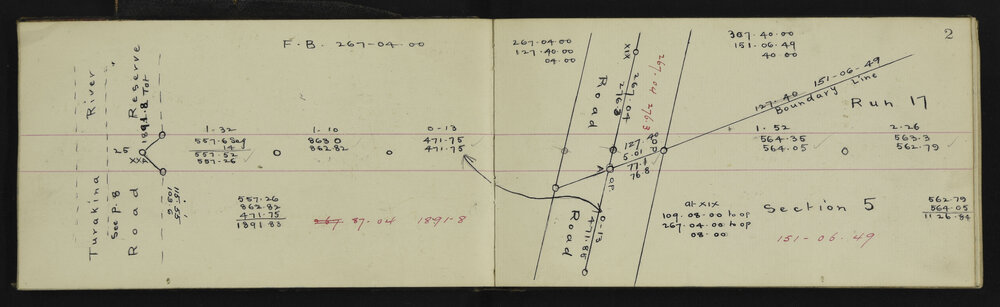 2
F.B. 267-04-00
Turakina River
See p. 8
Road Reserve
1891.8 Tot
25
XXA
1-32
557.52
557.26
1-10
863.0
862.82
0-13
471.75
471.75
557.26
862.82
471.75
1891.83
267 87.04 1891.8
267-04-00
127.40.00
04.00
XIX
Road
267.04
276.8
267.04 276.8
127.4
5.01
77.1
76.8
A
OP
Road
0-13
471.85
307.40.00
151.06.49
40.00
127.40 151-06-49
Boundary Line
Run 17
1.52
564.35
564.05
2.26
563.3
562.79
at XIX
109.08.00 to OP
267.04.00 to OP
08.00
Section 5
151-06.49
562.79
564.05
1126.84